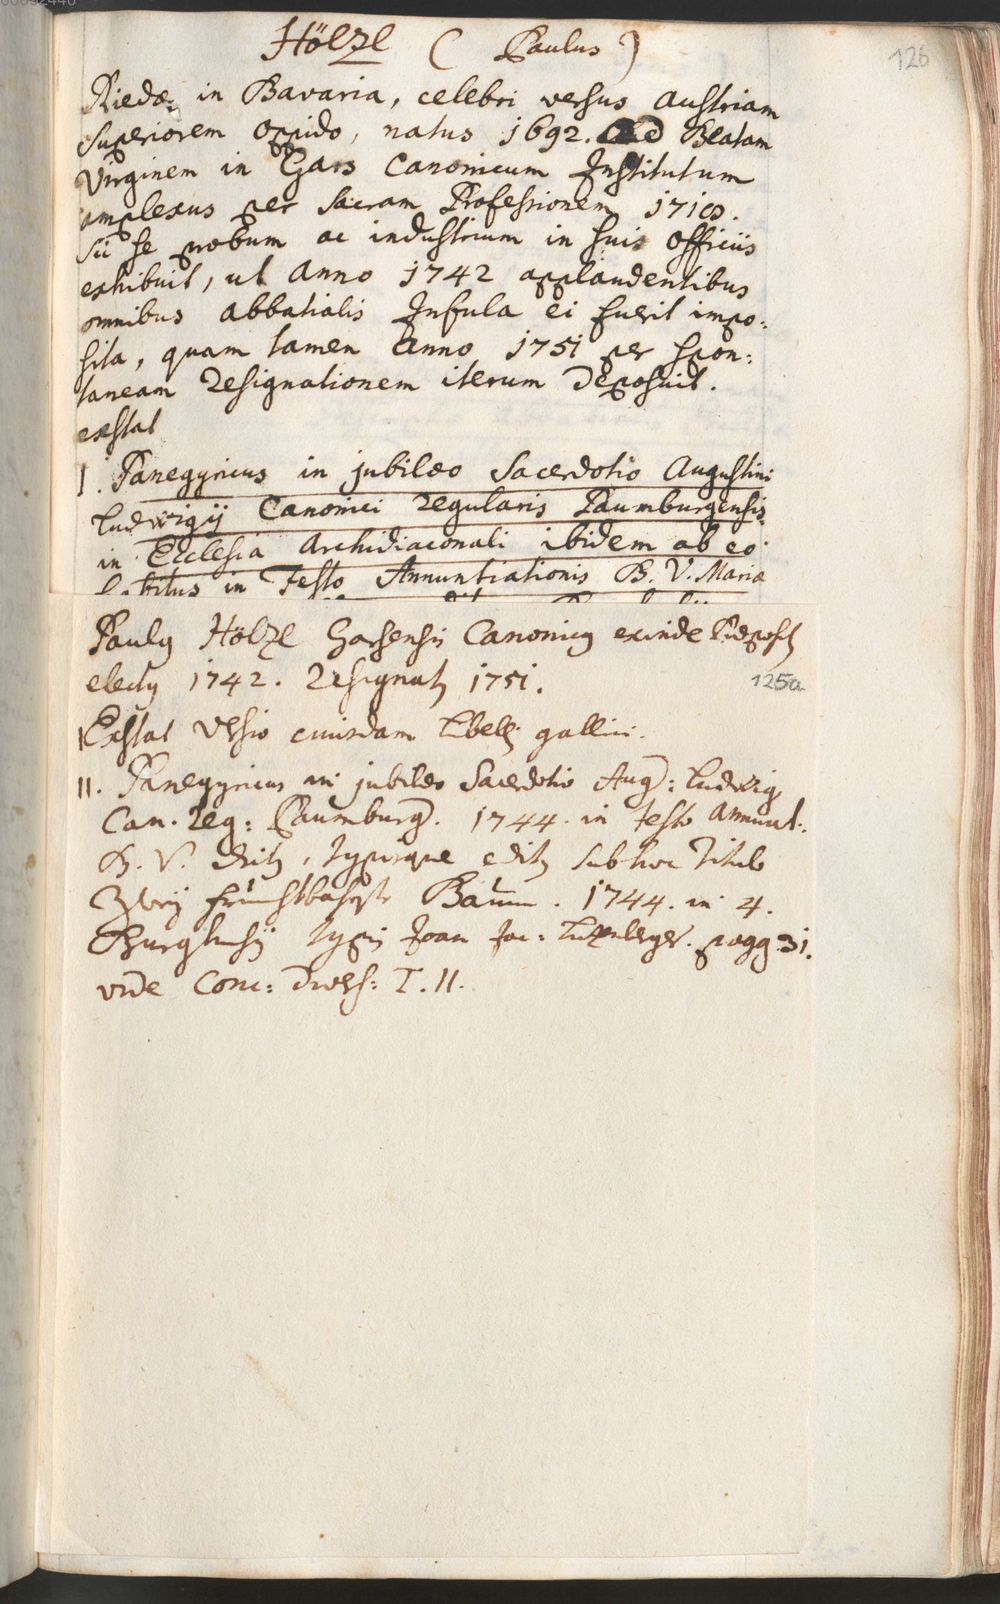 126
Hölzl ( Paulus )
Riedæ in Bavaria, celebri versus Austriam
Superiorem oppido, natus 1692. Ad Beatam
Virginem in Gars Canonicum Institutum
amplexus per Sacram Professionem
se probum ac industrium in suis officiis
exhibuit, ut Anno 1742 applaudentibus
omnibus abbatialis Infula ei fuerit impo:
sita, quam tamen Anno 1751 per spon:
taneam Resignationem iterum deposuit.
exstat
I. Panegyricus in jubilæo Sacerdotio Augustini
Ludwigij Canonici regularis Paumburgensis
in Ecclesia Archidiaconali ibidem ab eo
in Festo Annuntiationis B. V. Mariæ
Paulg Hölzl Garsensis Canonicg exinde
electg 1742. Resignatg 1751.
125a
I Exstat versio cuiusdam libelli gallici.
II. Panegyricus in jubilæo Sacerdotio Aug: Ludwig
Can. Reg: Paumburg. 1744. in Festo Annunt:
B. V. typisque edit sub hoc Titulo
Zwey Baum. 1744. in 4.
Burghusij typis Joan Jac: pagg. 31.
vide Conc: Divers: T. II.